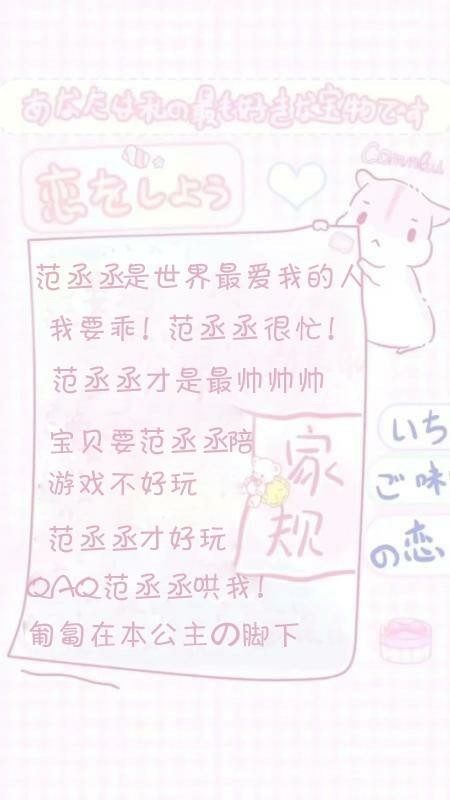 あなたは私の最も好きな宝物です
恋をしよう
范丞丞是世界最爱我的人
我要乖！范丞丞很忙！
范丞丞才是最帅帅帅
宝贝要范丞丞陪
游戏不好玩
范丞丞才好玩
QAQ范丞丞哄我！
匍匐在本公主の脚下
家
规
いち
ご味
の恋